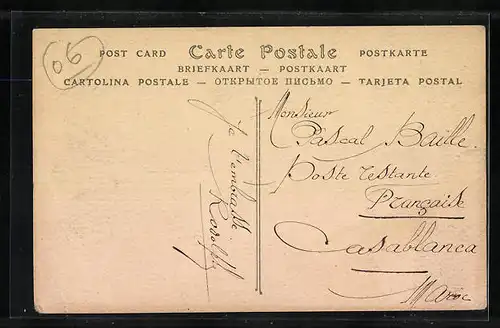 06
POST CARD Carte Postale POSTKARTE
BRIEFKAART — POSTKAART
CARTOLINA POSTALE — ОТКРЫТОЕ ПИСЬМО — TARJETA POSTAL
Je t'embrasse
Rodolphe
Monsieur
Pascal Baille
Poste restante
Française
Casablanca
Maroc